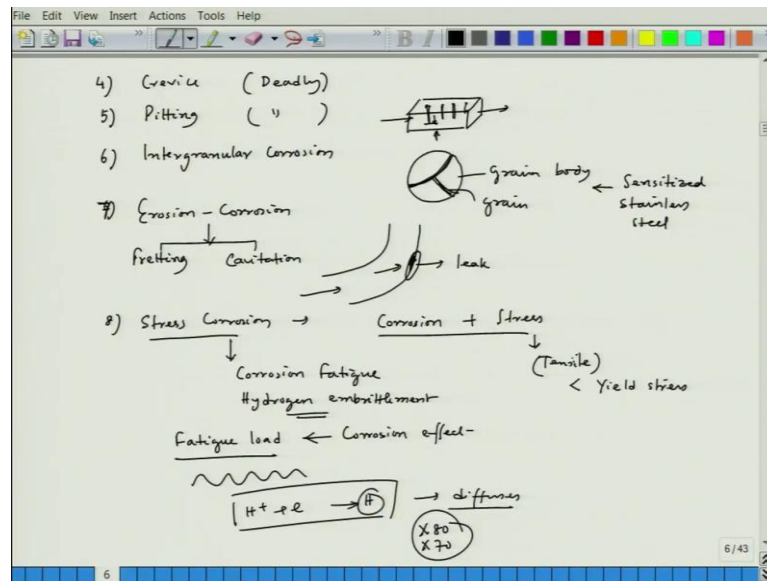 File Edit View Insert Actions Tools Help
4) Crevice (Deadly)
5) Pitting ( " )
6) Intergranular Corrosion
grain body
grain
← Sensitized
stainless
steel
7) Erosion - Corrosion
Fretting Cavitation
→ leak
8) Stress Corrosion → Corrosion + Stress
(Tensile)
< Yield stress
Corrosion Fatigue
Hydrogen embrittlement
Fatigue load ← Corrosion effect-
H+ + e → H → diffuses
X80
X70
6/43
6